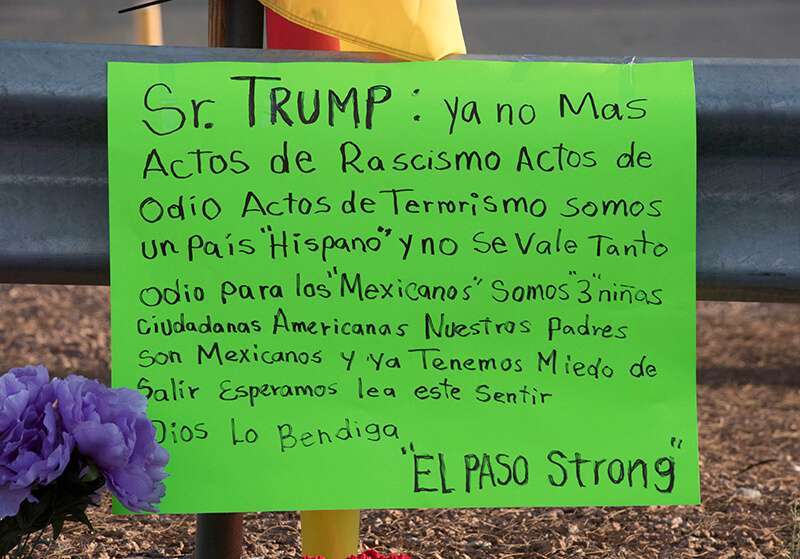 Sr. TRUMP: ya no Mas
Actos de Rascismo Actos de
Odio Actos de Terrorismo somos
un país "Hispano" y no se vale Tanto
odio para los "Mexicanos" somos "3" niñas
ciudadanas Americanas Nuestros Padres
son Mexicanos y ya Tenemos Miedo de
Salir Esperamos lea este sentir
Dios Lo Bendiga
"EL PASO Strong"